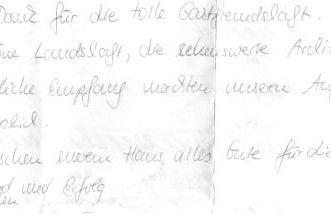 Dank für die tolle Gastfreundschaft.
Landschaft, die sehenswerte
Empfang machten unseren
eurem Haus alles Gute für die
und Erfolg